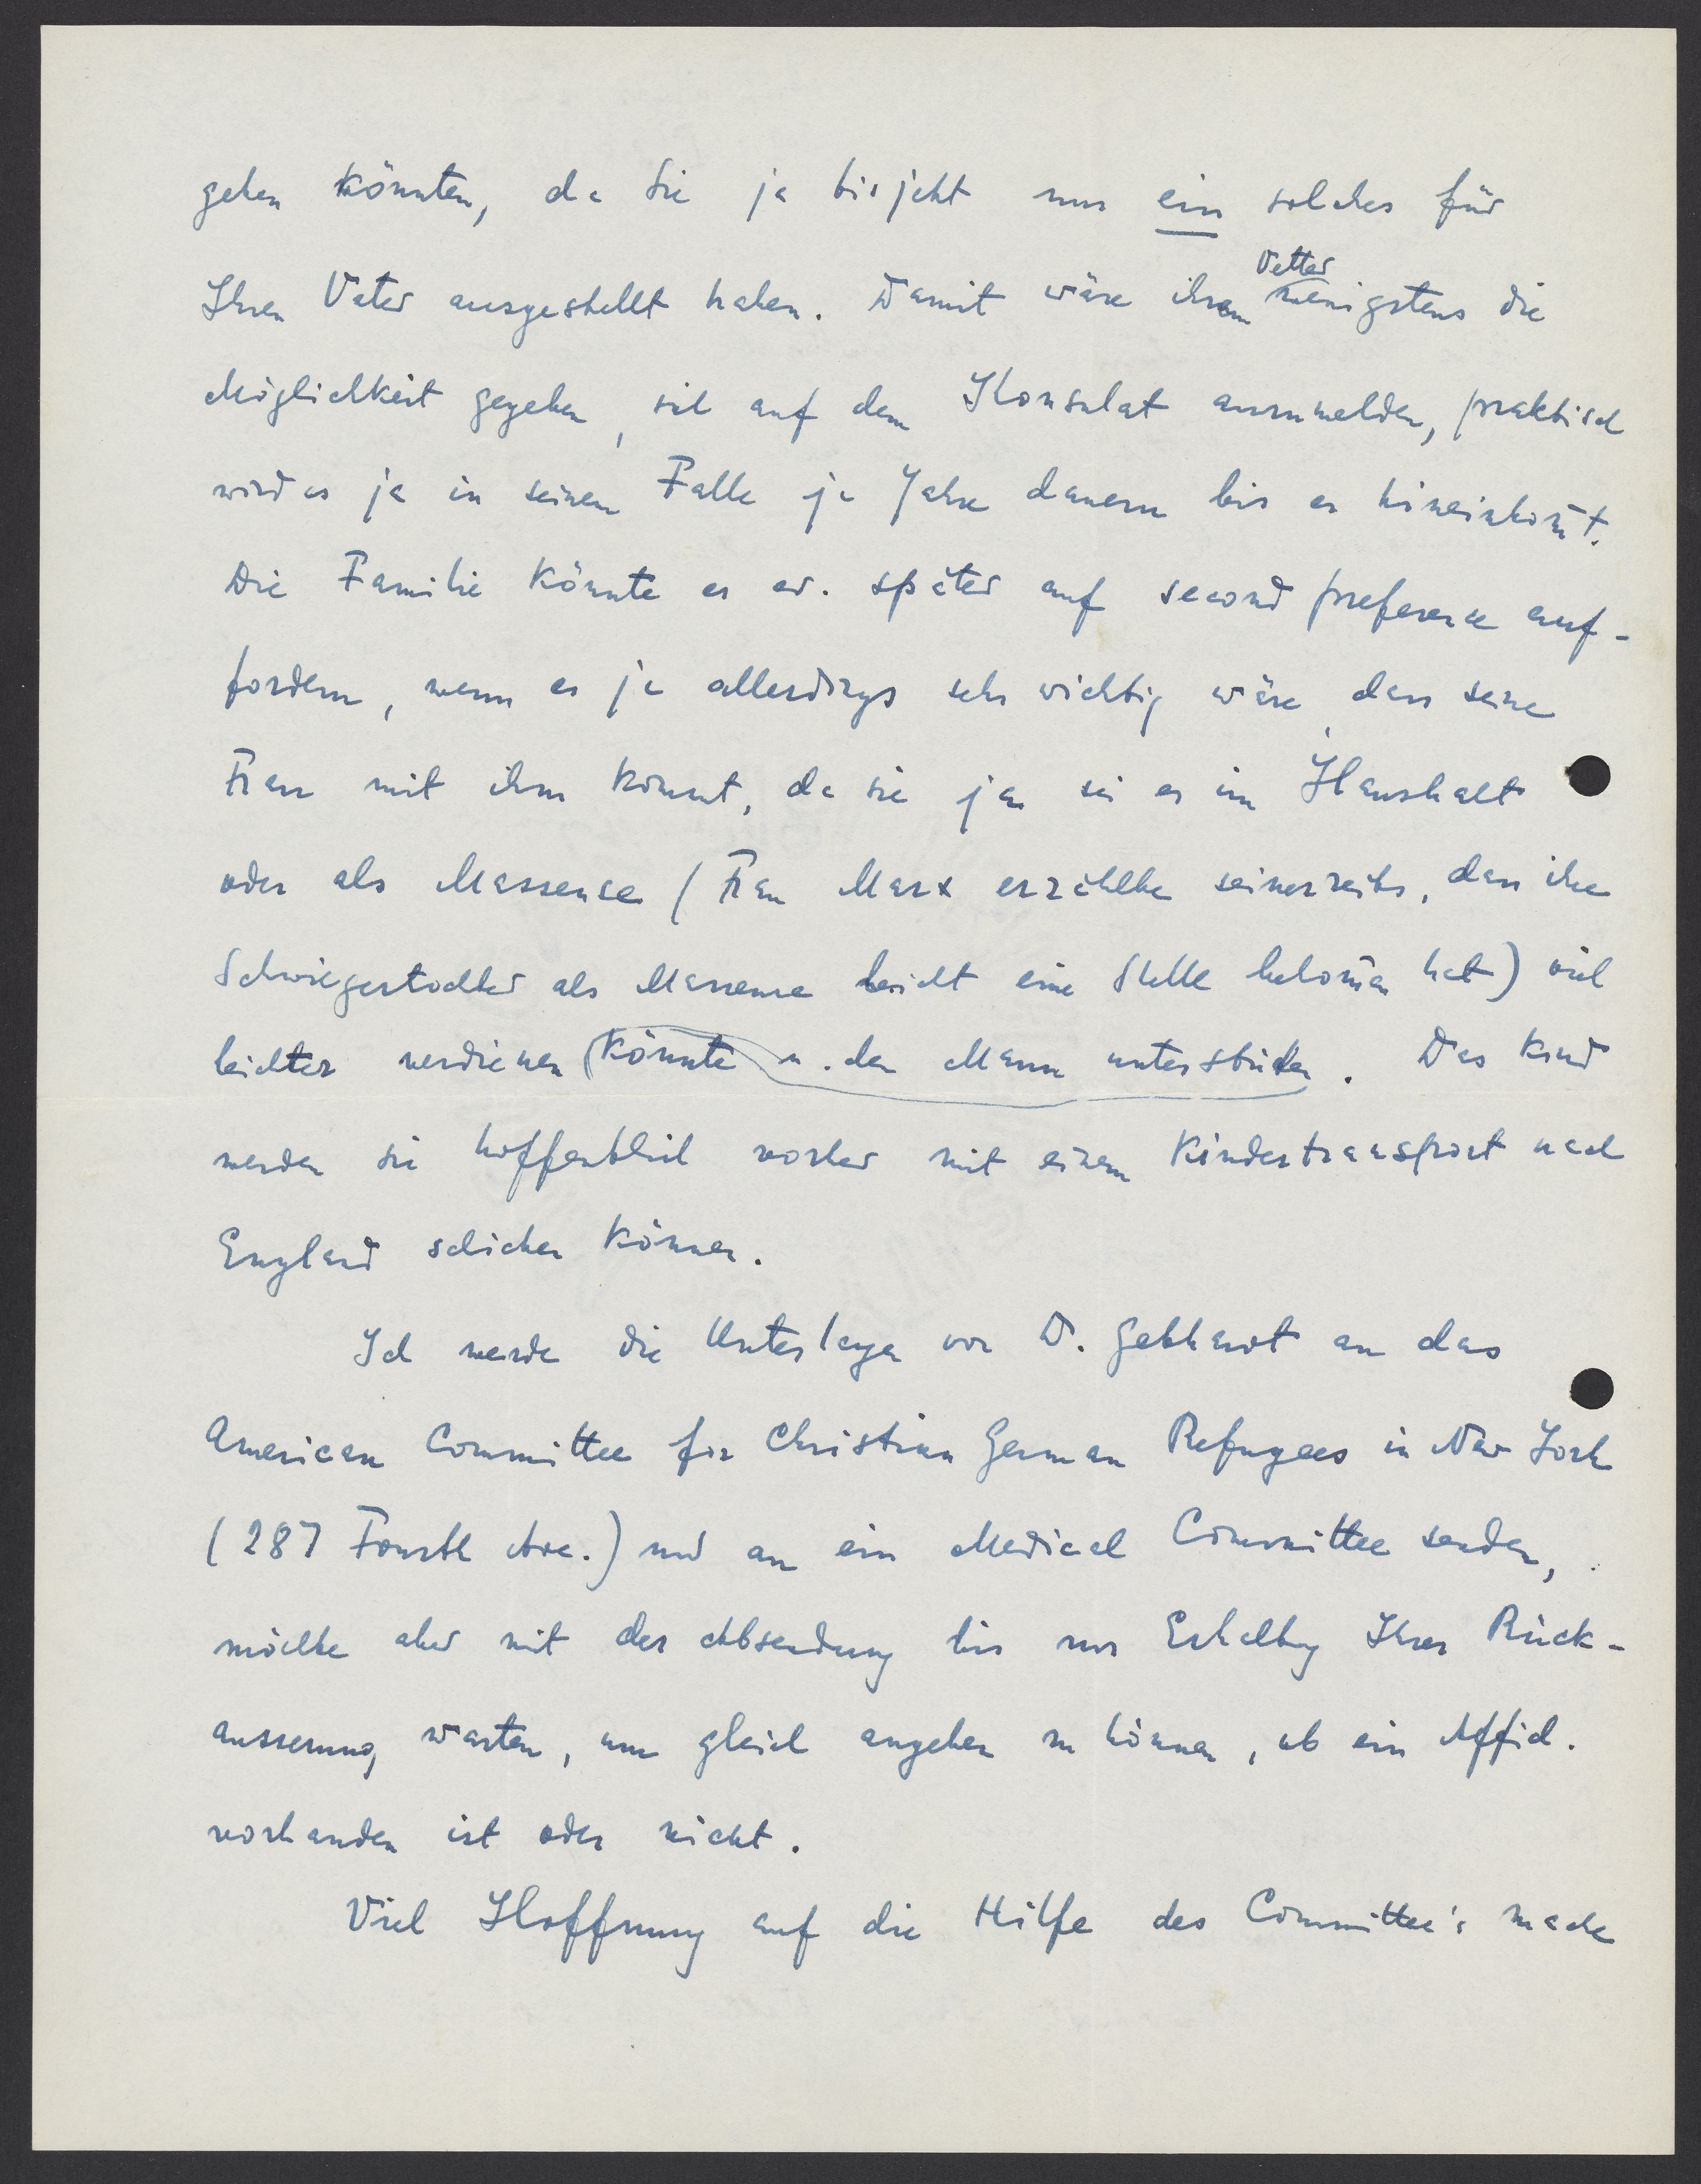 geben könnten, da Sie ja bisjetzt nur ein solches für
Ihren Vater ausgestellt haben. Damit wäre ihrem Vetter wenigstens die
Möglichkeit gegeben, sich auf dem Konsulat anzumelden, praktisch
wird es ja in seinem Falle ja Jahre dauern bis er hineinkom̄t.
Die Familie könnte er ev. später auf second preference auf-
fordern, wenn es ja allerdings sehr wichtig wäre, dass seine
Frau mit ihm kommt, da sie ja sei es im Haushalt
oder als Masseuse (Frau Marx erzählte seinerzeits, dass ihre
Schwiegertochter als Masseuse leicht eine Stelle bekom̄en hat) viel
leichter verdienen könnte u. den Mann unterstützen. Das Kind
werden sie hoffentlich vorher mit einem Kindertransport nach
England schicken können.
Ich werde die Unterlagen von D. Gebhardt an das
American Committee for Christian German Refugees in New York
(287 Fourth Ave.) und an ein Medical Committee senden,
möchte aber mit der Absendung bis zur Erhaltung Ihrer Rück-
äusserung warten, um gleich angeben zu können, ob ein Affid.
vorhanden ist oder nicht.
Viel Hoffnung auf die Hilfe des Committee's mache